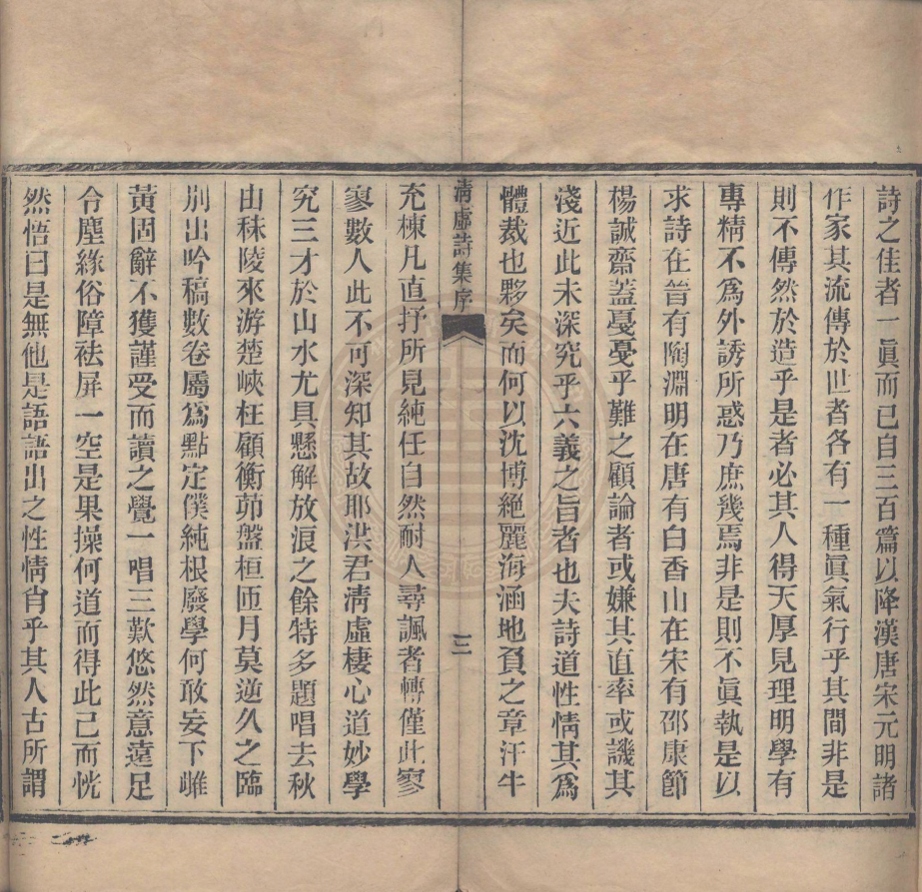 詩之佳者一眞而已自三百篇以降漢唐宋元明諸
作家其流傳於世者各有一種眞氣行乎其間非是
則不傳然於造乎是者必其人得天厚見理明學有
專精不爲外誘所惑乃庶幾焉非是則不眞執是以
求詩在晉有陶淵明在唐有白香山在宋有邵康節
楊誠齋蓋戛戛乎難之顧論者或嫌其直率或譏其
淺近此未深究乎六義之旨者也夫詩道性情其爲
體裁也夥矣而何以沈博絕麗海涵地負之章汗牛
淸虛詩集序
三
充棟凡直抒所見純任自然耐人尋諷者轉僅此寥
寥數人此不可深知其故耶洪君淸虛棲心道妙學
究三才於山水尤具懸解放浪之餘特多題唱去秋
由秣陵來游楚峽枉顧衡茆盤桓匝月莫逆久之臨
別出吟稿數卷屬爲點定僕純根廢學何敢妄下雌
黃固辭不獲謹受而讀之覺一唱三歎悠然意遠足
令塵緣俗障祛屏一空是果操何道而得此已而恍
然悟曰是無他是語語出之性情肖乎其人古所謂